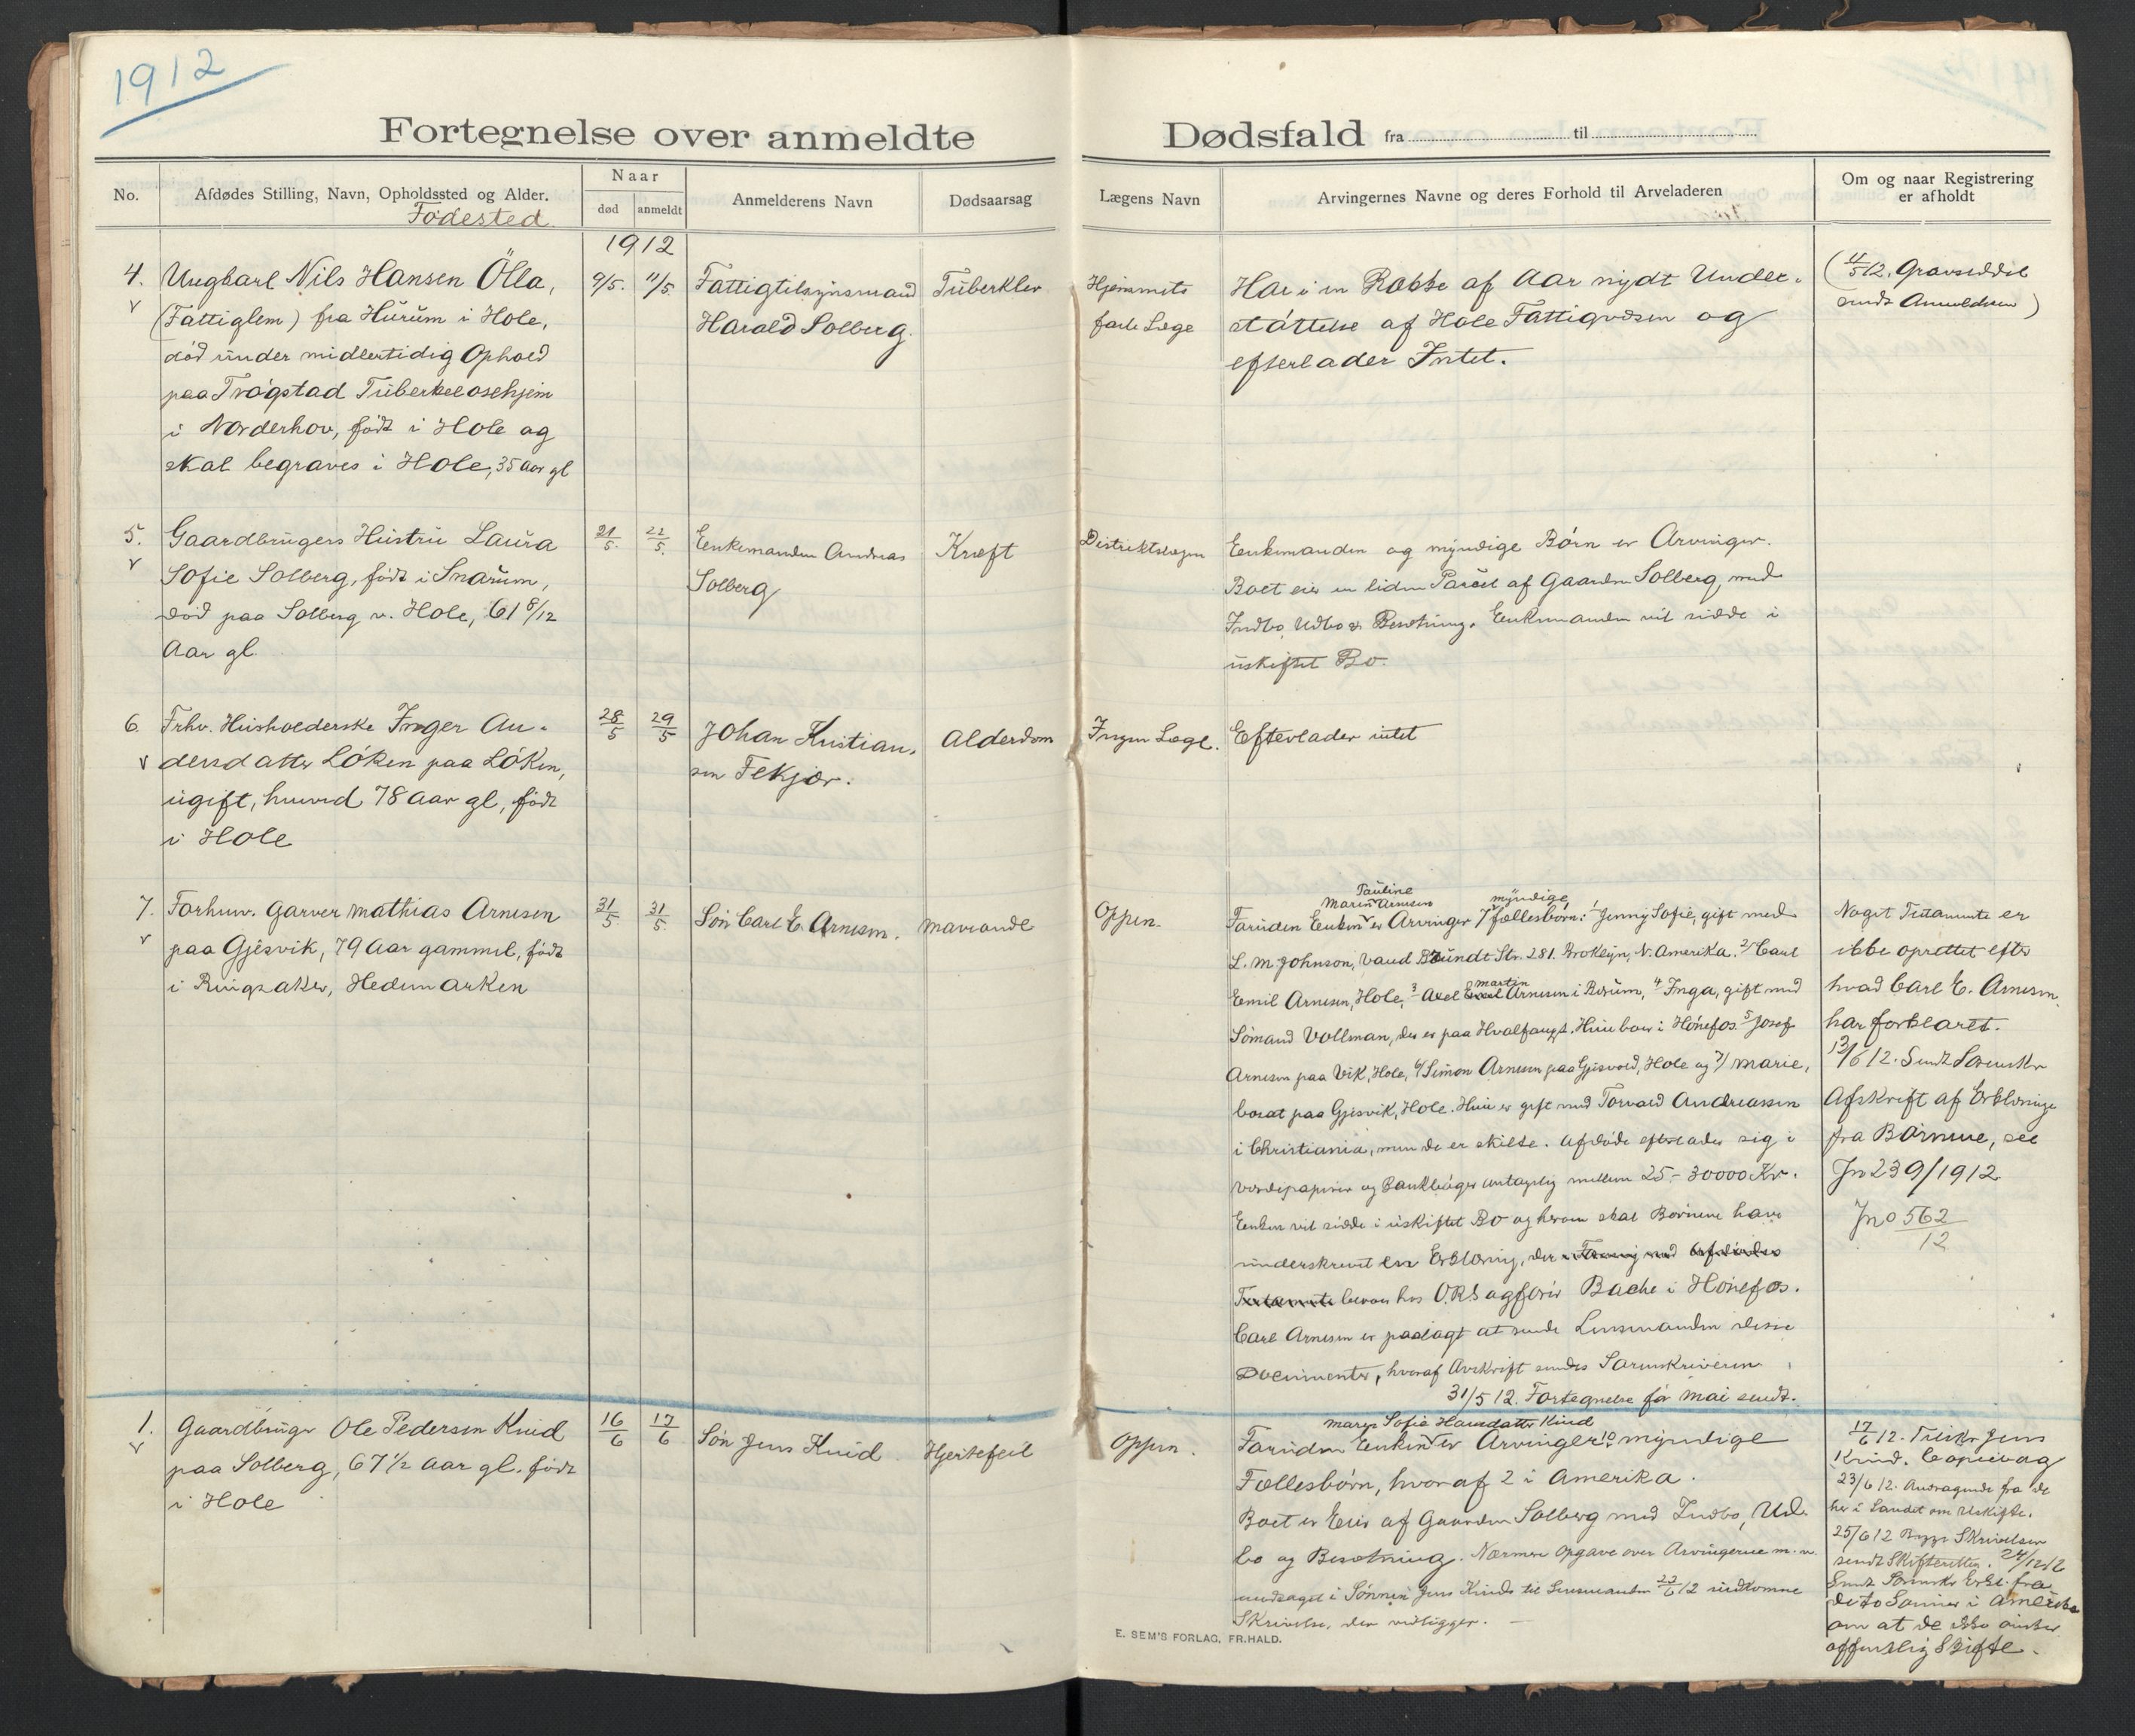 1912
Fortegnelse over anmeldte Dødsfald fra til
No.
Afdødes Stilling, Navn, Opholdssted og Alder.
Fødested
Naar
død
anmeldt
Anmelderens Navn
Dødsaarsag
Lægens Navn
Arvingernes Navne og deres Forhold til Arveladeren
Om og naar Registrering
er afholdt
1912
4.
Ungkarl Nils Hansen Ölla,
(Fattiglem) fra Hurum i Hole,
död under midlertidig Ophold
paa Trögstad Tuberkelosehjem
i Norderhov, födt i Hole og
skal begraves i Hole, 35 Aar gl
9/5.
11/5.
Fattigtilsynsmand
Harald Solberg.
Tuberkler
Hjemmets
faste Læge
Har i en Række af Aar nydt Under-
støttelse af Hole Fattigvæsen og
efterlader Intet.
(11/5 12. Gravseddel
sendt Anmelderen)
5.
Gaardbrugers Hustru Laura
Sofie Solberg, födt i Snarum,
död paa Solberg v. Hole, 61 8/12
Aar gl
21/5.
22/5.
Enkemanden Andreas
Solberg
Kræft
Distriktslægen
Enkemanden og myndige Børn er Arvinger.
Boet eier en liden Parcel af Gaarden Solberg, med
Indbo, Udbo & Besætning. Enkemanden vil sidde i
uskiftet Bo.
6.
Frhv. Husholderske Inger An-
dersdatter Löken paa Löken,
ugift, henved 78 Aar gl, födt
i Hole
28/5
29/5
Johan Kristian-
sen Fekjær.
Alderdom
Ingen Læge.
Efterlader intet
7.
Forhenv. Garver Mathias Arnesen
paa Gjesvik, 79 Aar gammel, födt
i Ringsaker, Hedemarken
31/5
31/5.
Sön Carl E. Arnesen.
Marasme
Oppen.
Pauline
Maren Arnesen myndige
Foruden Enken er Arvinger 7 fællesbörn: 1 Jenny Sofie, gift med
L. M. Johnson, Str. 281. Broklyn, N. Amerika. 2/ Carl
Emil Arnesen, Hole, 3 Axel Martin Arnesen i Bærum, 4 Inga, gift med
Sömand Vollman, der er paa Hvalfangst. Hun boer i Hönefos. 5 Josef
Arnesen paa Vik, Hole, 6/ Simon Arnesen paa Gjesvold, Hole og 7/ Marie,
bosat paa Gjesvik, Hole. Hun er gift med Torvald Andreassen
i Christiania, men de er skilte. Afdöde efterlader sig i
Værdipapirer og Bankböger antagelig mellem 25 - 30000 Kr.
Enken vil sidde i uskiftet Bo og herom skal Börnene have
underskrevet en Erklæring, der
beror hos O.R.Sagförer Bache i Hönefos.
Carl Arnesen er paalagt at sende Lensmanden disse
Documenter, hvoraf Avskrift sendes Sorenskriveren
31/5 12. Fortegnelse for Mai sendt.
Noget Testamente er
ikke oprettet efter
hvad Carl E. Arnesen
har forklaret.
13/6 12. Sendt Sorenskr
Afskrift af Erklæringe
fra Börnene, see
Jn 239/1912
Jno 562/12
1.
Gaardbruger Ole Pedersen Knid
paa Solberg, 67 1/2 Aar gl. födt
i Hole
16/6
17/6
Sön Jens Knid
Hjertefeil
Oppen.
Maren Sofie Hansdatter Knid
Foruden Enken er Arvinger 10 myndige
Fællesbörn, hvoraf 2 i Amerika.
Boet er Eier af Gaarden Solberg med Indbo, Ud-
bo og Besætning. Nærmere Opgave over Arvingerne m. v.
medtaget i Sönnen Jens Knids til Lensmanden 22/6 12 indkomne
Skrivelse, der vedligger.
17/6 12. Jens
Knid. Copiebog
23/6 12. Andragende fra de
her i Landet om Uskifte.
25/6 12 Skrivelsen
sendt Skifteretten. 24/12 12
Sendt Sorenskr Erkl. fra
de to Sönner i Amerika
om at de ikke önsker
offentlig Skifte.
E. SEM'S FORLAG, FR.HALD.